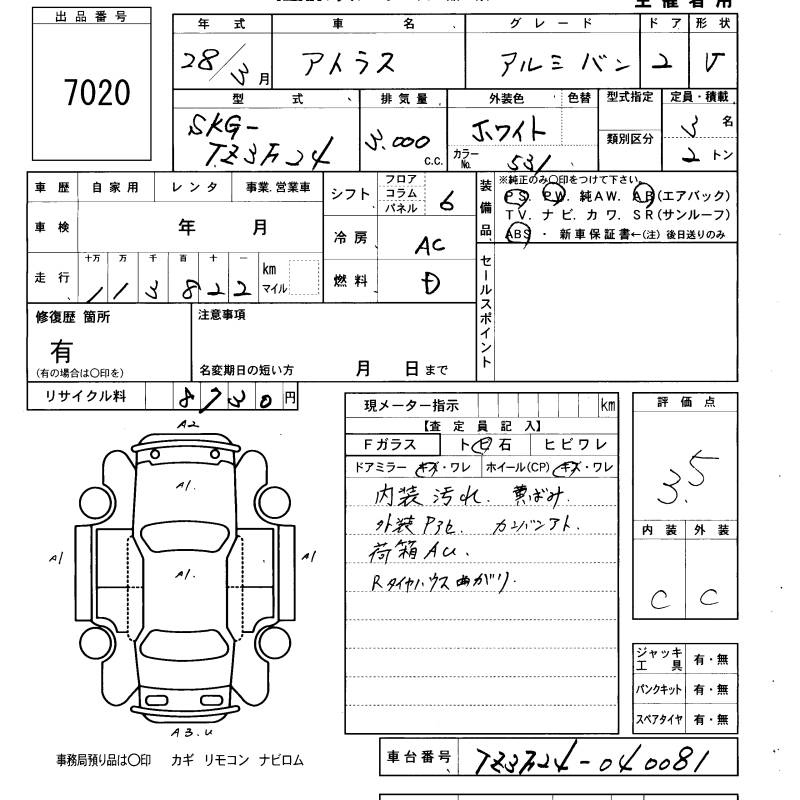 主催者用
出品番号
7020
年式 車名 グレード ドア 形状
28/3月 アトラス アルミバン 2 V
型式 排気量 外装色 色替 型式指定 定員・積載
SKG-TZ3F24 3.000 c.c. ホワイト 類別区分 3名
カラーNo. 531 2トン
車歴 自家用 レンタ 事業.営業車
シフト フロア コラム パネル 6
装備品 ※純正のみ○印をつけて下さい。
PS. PW. 純AW. AB(エアバック)
TV. ナビ. カワ. SR(サンルーフ)
ABS ・ 新車保証書←(注) 後日送りのみ
車検 年 月
冷房 AC
走行 十万 万 千 百 十 一
113822 km マイル
燃料 D
セールスポイント
修復歴 箇所
有
(有の場合は○印を)
注意事項
名変期日の短い方 月 日まで
リサイクル料 8730円
現メーター指示 km
【査定員記入】
Fガラス ト日石 ヒビワレ
ドアミラー キズ・ワレ ホイール(CP) キズ・ワレ
内装汚れ. 黄ばみ.
外装P3セ カンバンアト.
荷箱AU.
RタイヤハウスまがりL.
評価点
3.5
内装 外装
C C
A2
A1.
A1 A1. A1
A3.U
ジャッキ工具 有・無
パンクキット 有・無
スペアタイヤ 有・無
事務局預り品は○印 カギ リモコン ナビロム
車台番号 TZ3F24-040081